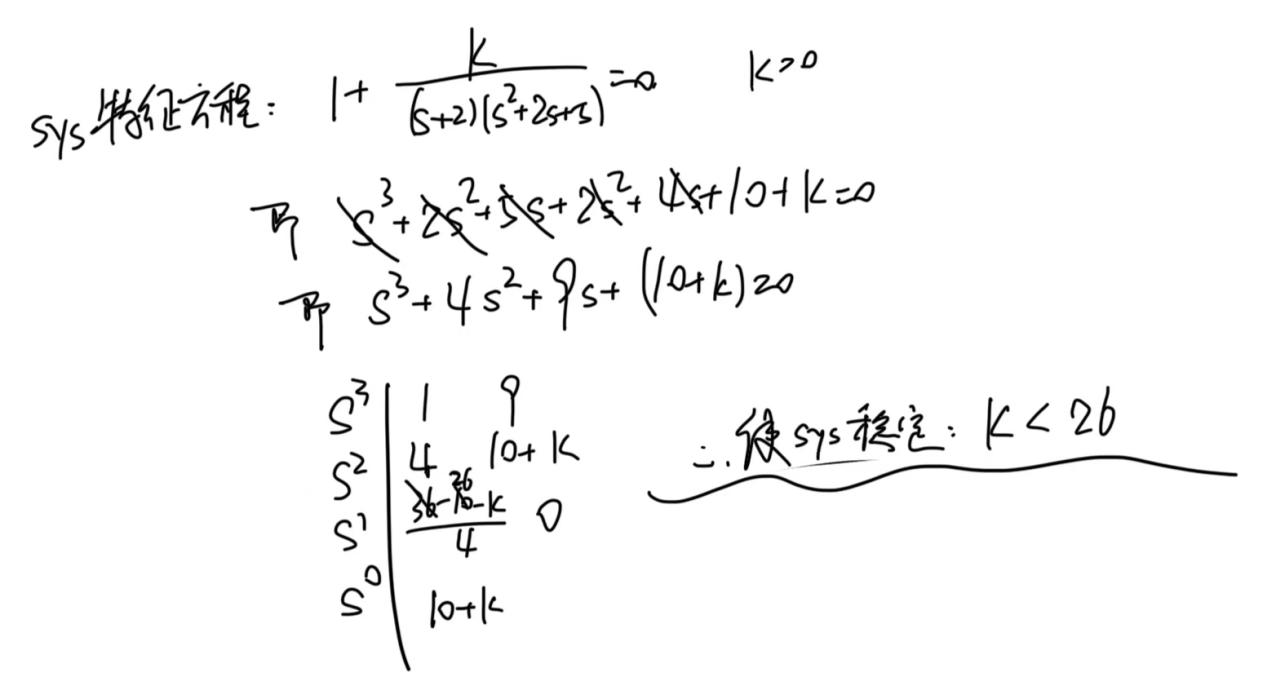 sys特征方程: 1+ k/((s+2)(s²+2s+5)) =0. k>0
即 s³+2s²+5s+2s²+4s+10+k=0
即 s³+4s²+9s+(10+k)=0
s³ | 1 9
s² | 4 10+k
s¹ | (36-10-k)/4 0
26
s⁰ | 10+k
∴使sys稳定: k<26